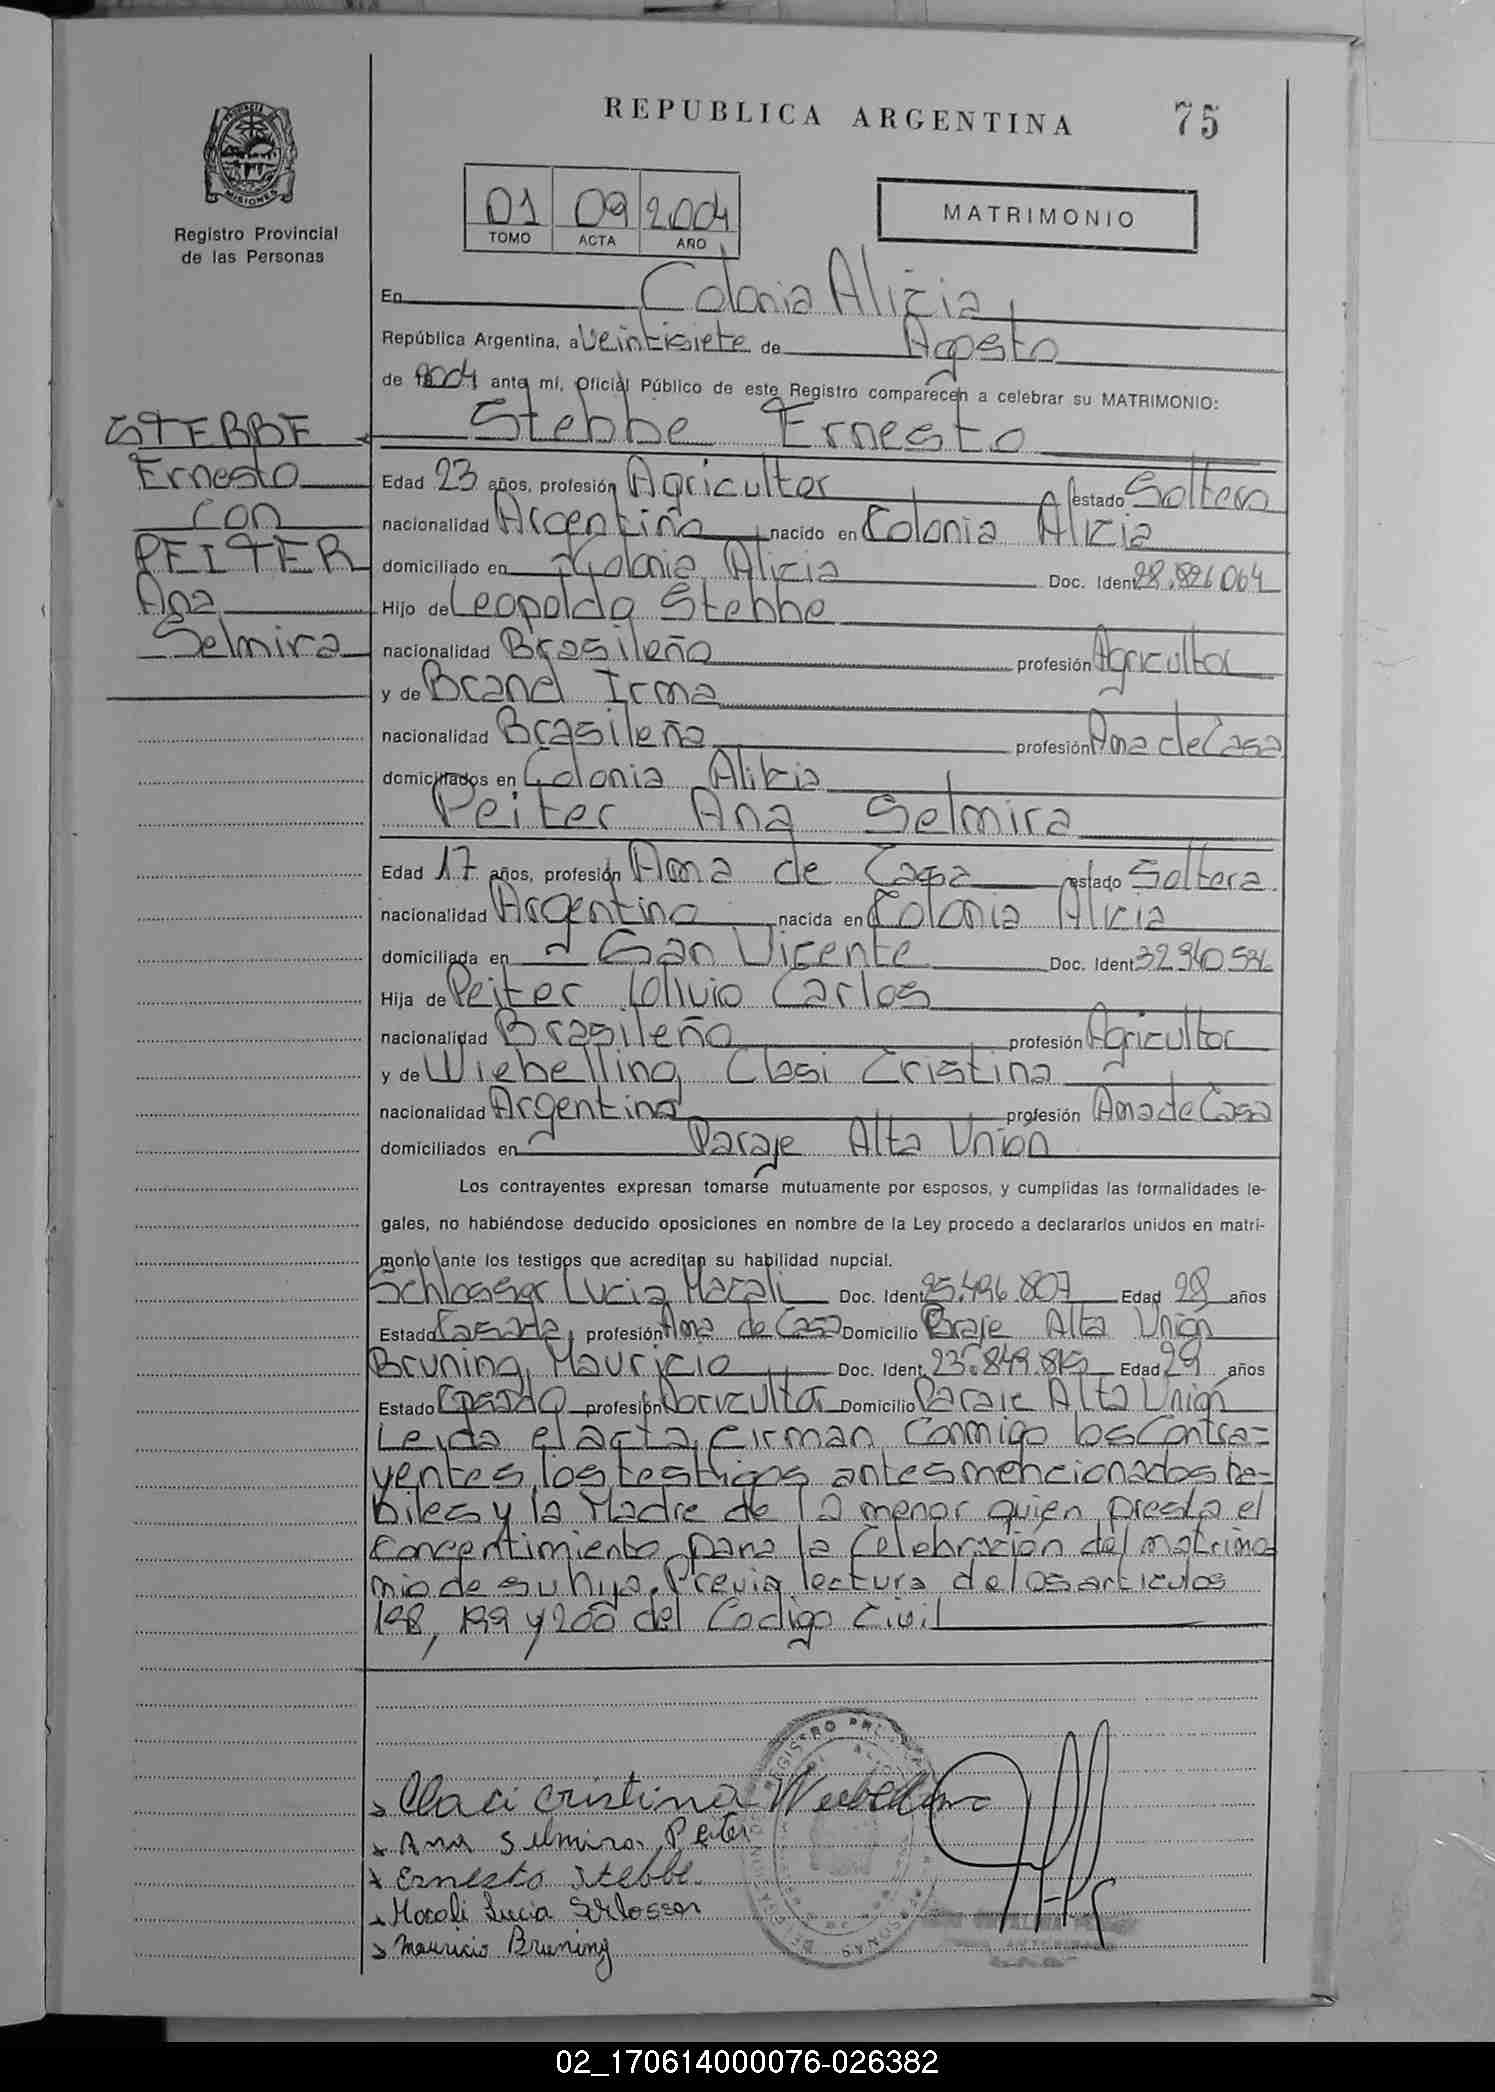 REPUBLICA ARGENTINA
75
PROVINCIA DE
MISIONES
Registro Provincial
de las Personas
01 09 2004
TOMO ACTA AÑO
MATRIMONIO
En Colonia Alicia
República Argentina, a Veintisiete de Agosto
de 2004 ante mí, Oficial Público de este Registro comparecen a celebrar su MATRIMONIO:
STEBBE
Ernesto
con
PEITER
Ana
Selmira
Stebbe Ernesto
Edad 23 años, profesión Agricultor estado Soltero
nacionalidad Argentino nacido en Colonia Alicia
domiciliado en Colonia Alicia Doc. Ident 28.826.064
Hijo de Leopoldo Stebbe
nacionalidad Brasileño profesión Agricultor
y de Brand Irma
nacionalidad Brasileña profesión Ama de Casa
domiciliados en Colonia Alicia
Peiter Ana Selmira
Edad 17 años, profesión Ama de Casa estado Soltera
nacionalidad Argentina nacida en Colonia Alicia
domiciliada en San Vicente Doc. Ident 32.940.536
Hija de Peiter Olivio Carlos
nacionalidad Brasileño profesión Agricultor
y de Wiebelling Clasi Cristina
nacionalidad Argentina profesión Ama de Casa
domiciliados en Paraje Alta Union
Los contrayentes expresan tomarse mutuamente por esposos, y cumplidas las formalidades le-
gales, no habiéndose deducido oposiciones en nombre de la Ley procedo a declararlos unidos en matri-
monio ante los testigos que acreditan su habilidad nupcial.
Schlosser Lucia Marali Doc. Ident 25.496.807 Edad 28 años
Estado Casada, profesión Ama de Casa Domicilio Paraje Alta Union
Bruning, Mauricio Doc. Ident. 23.849.815 Edad 29 años
Estado Casado profesión Agricultor Domicilio Paraje Alta Union
Leida el acta, Firman Conmigo los Contra=
yentes, los testigos antes mencionados ha=
biles y la Madre de la menor quien presta el
Concentimiento para la Celebracion del matrimo
mio de su hija. Previa lectura de los articulos
198, 199 y 200 del Codigo Civil
Claci Cristina Wiebelling
Ana Selmira Peiter
Ernesto Stebbe.
Marali Lucia Schlosser
Mauricio Bruning
02_170614000076-026382